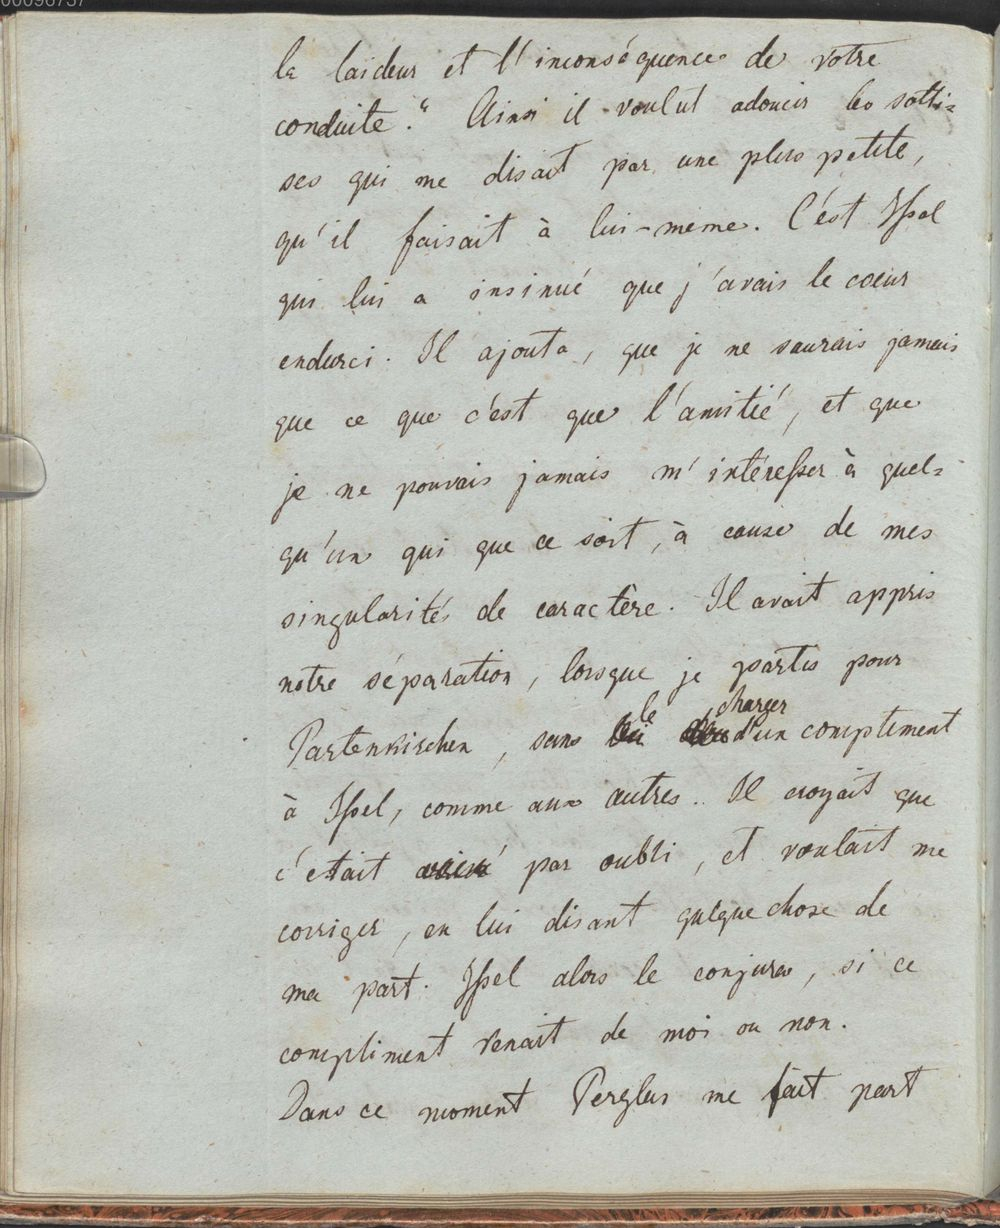 00096737
la laideur et l'inconséquence de votre
conduite." Ainsi il voulut adoucir les sotti=
ses qui me disait par une plus petite,
qu'il faisait à lui-meme. C'est Issel
qui lui a insinué que j'avais le coeur
endurci. Il ajouta, que je ne saurais jamais
que ce que c'est que l'amitié, et que
je ne pouvais jamais m'intéresser à quel=
qu'un qui que ce soit, à cause de mes
singularités de caractère. Il avait appris
notre séparation, lorsque je partis pour
Partenkirchen, sans le charger d'un compliment
à Issel, comme aux autres. Il croyait que
c'etait par oubli, et voulait me
corriger, en lui disant quelque chose de
ma part. Issel alors le conjura, si ce
compliment venait de moi ou non.
Dans ce moment Perglas me fait part